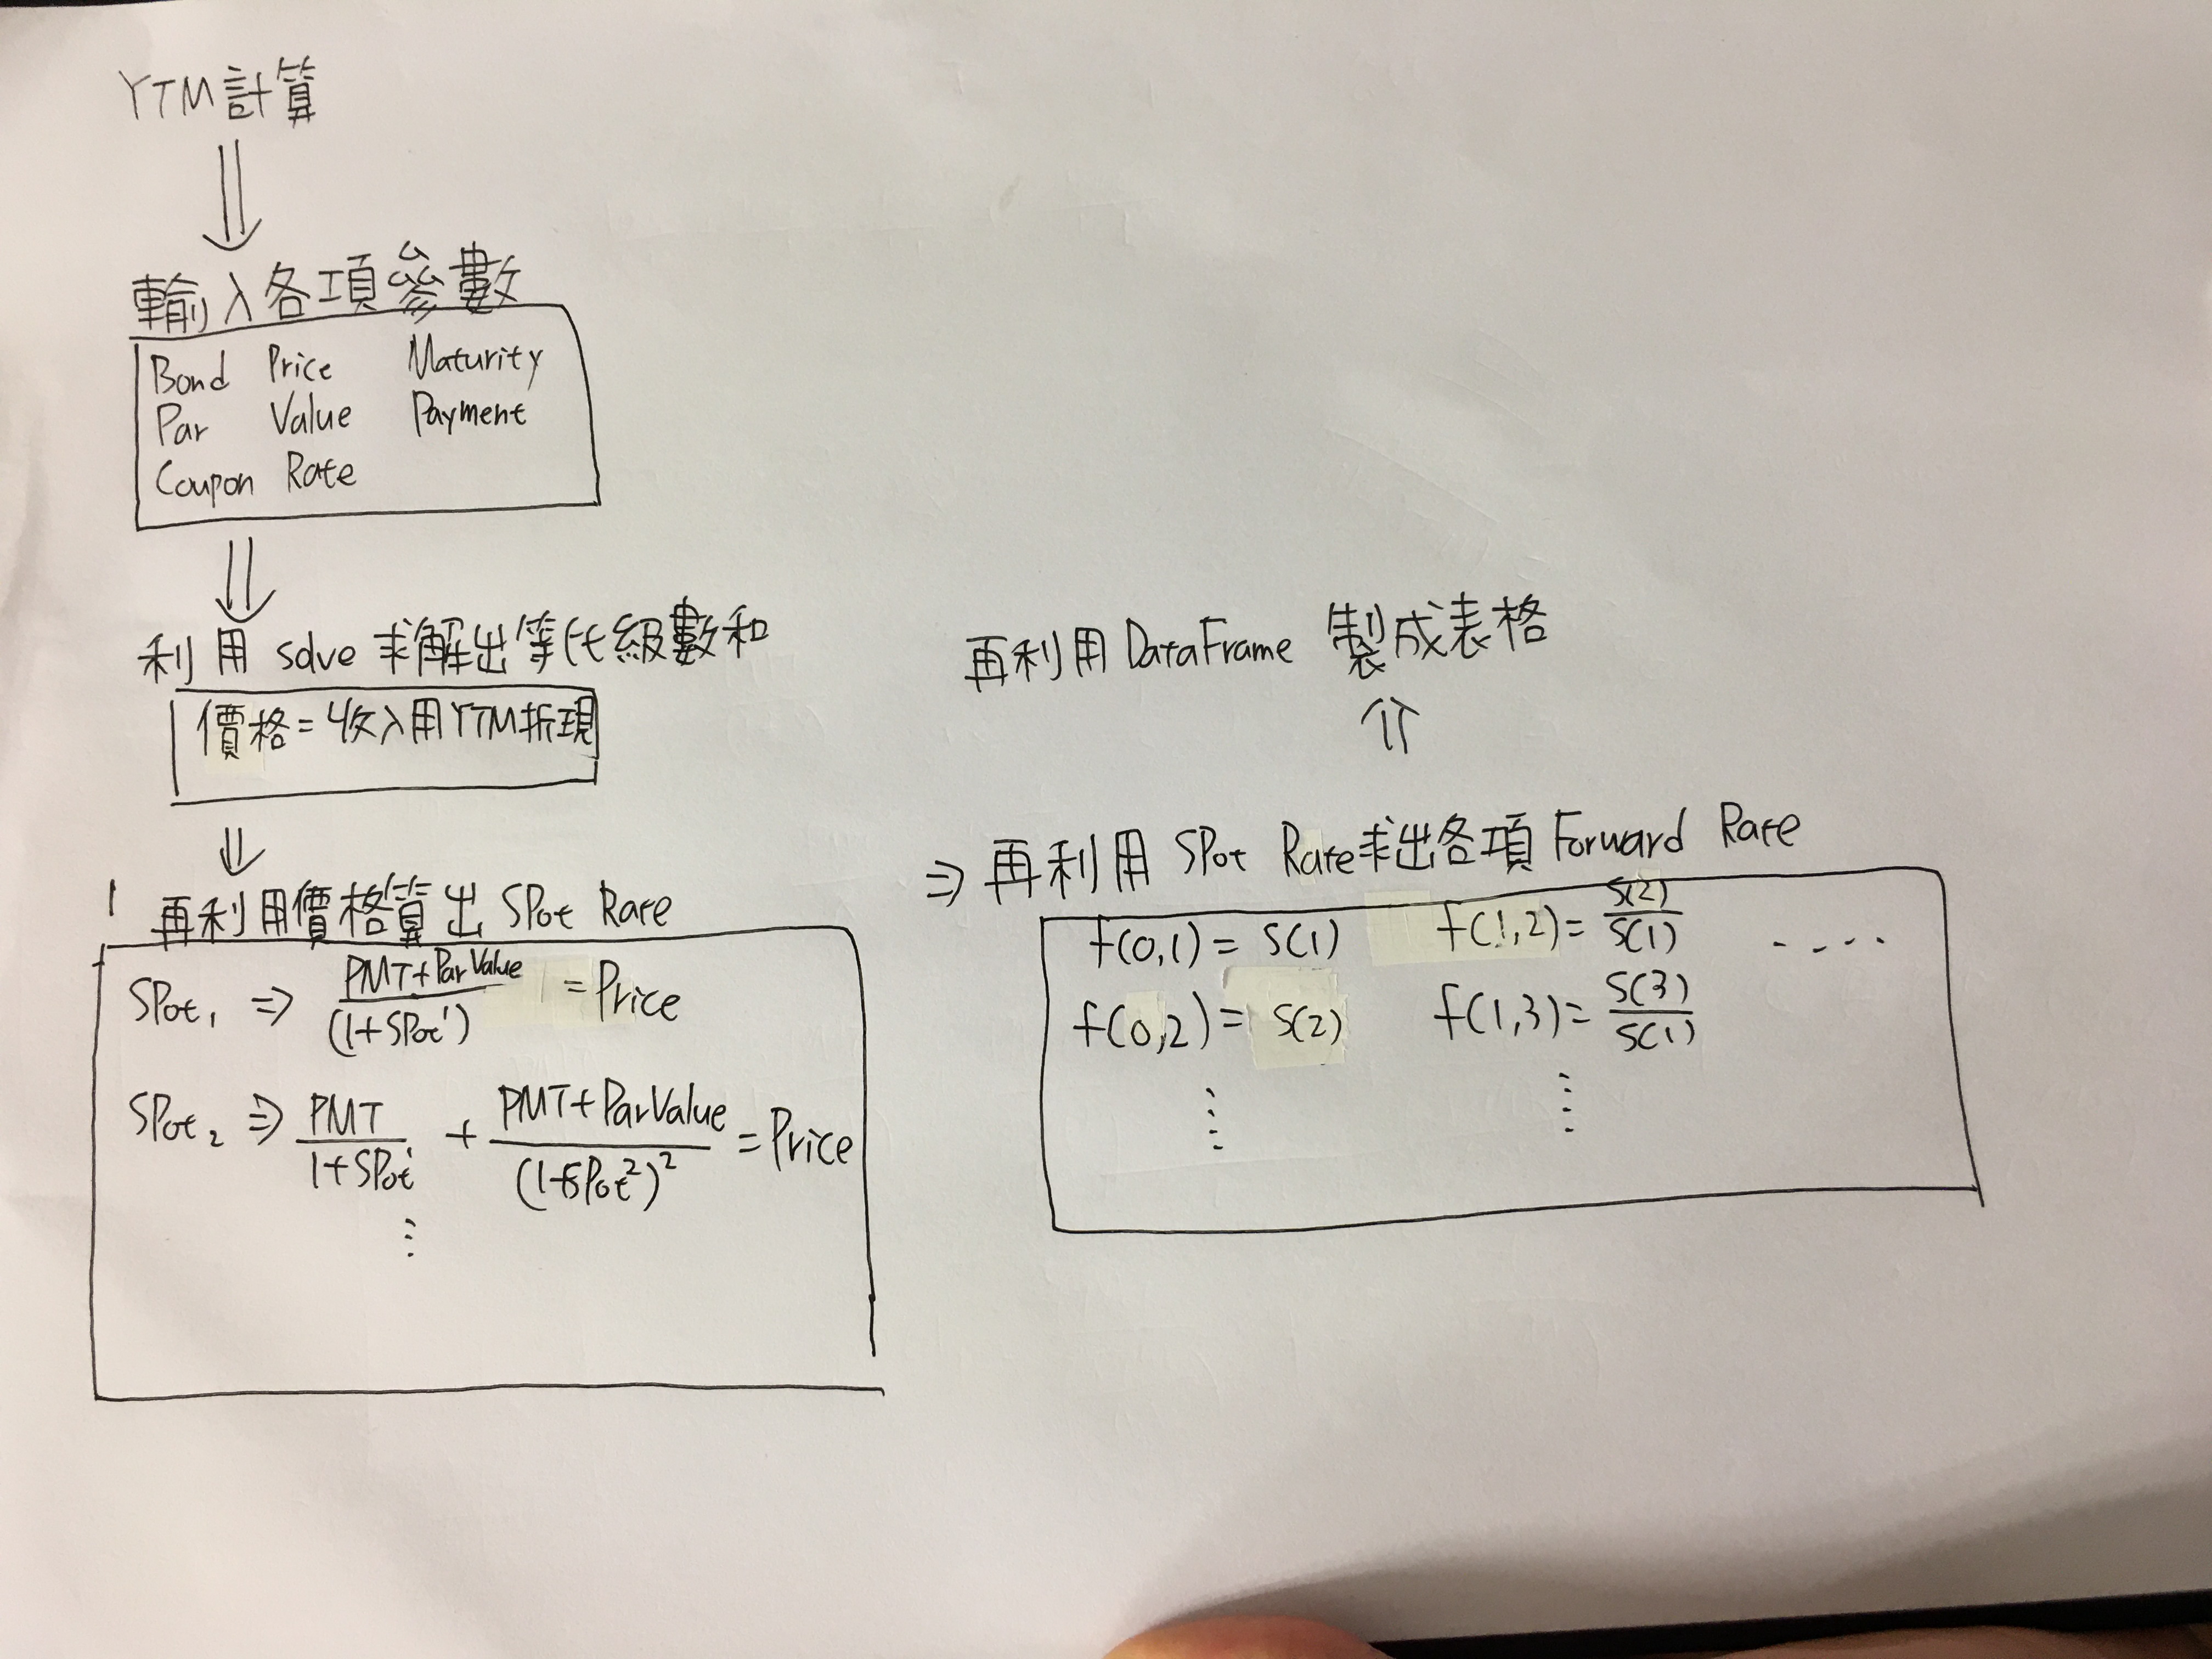 YTM計算
⇓
輸入各項參數
Bond Price Maturity
Par Value Payment
Coupon Rate
⇓
利用 solve 求解出等比級數和
價格=收入用YTM折現
⇓
再利用價格算出 Spot Rate
Spot₁ ⇒ PMT+ParValue / (1+Spot¹) = Price
Spot₂ ⇒ PMT / 1+Spot¹ + PMT+ParValue / (1+Spot²)² = Price
⋮
⇒ 再利用 Spot Rate求出各項 Forward Rate
f(0,1) = S(1) f(1,2) = S(2) / S(1) ....
f(0,2) = S(2) f(1,3) = S(3) / S(1)
⋮ ⋮
⇑
再利用 DataFrame 製成表格